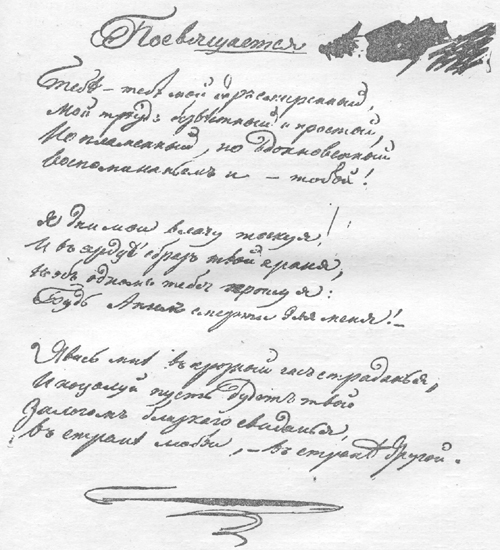 Посвящается
Тебѣ – тебѣ мой даръ смиренный,
Мой трудъ безвѣстный и простой,
Но пламенный, но вдохновенный
Воспоминаньемъ и – тобой!
Я дни мои влачу тоскуя!
И въ сердцѣ образъ твой храня,
Но объ одномъ тебя прошу я:
Будь Ангелъ смерти для меня! –
Явись мнѣ въ грозный часъ страданья,
И поцелуй пусть будетъ твой
Залогомъ близкаго свиданья,
Въ странѣ любви, – въ странѣ другой.